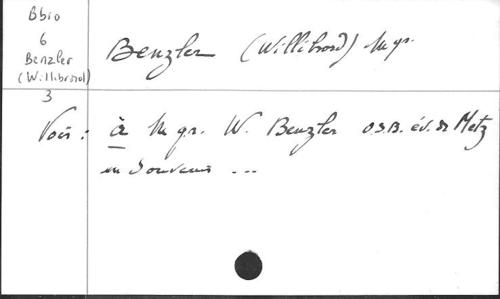 Bbio
6
Benzler
(Willibrord)
3
Benzler (Willibrord) Mgr.
Voir : à Mgr. W. Benzler O.S.B. év. de Metz
en Souvenir ...